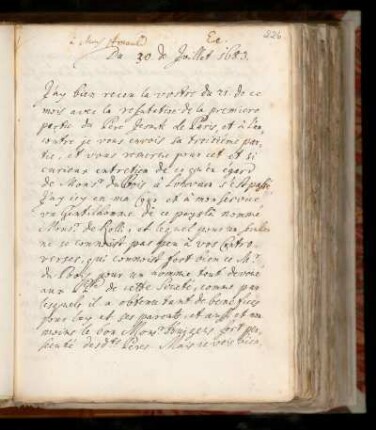 à Mons. Arnauld Ee. 226.
Du 30 de Juillet 1683.
J'ay bien receu la vostre du 21. de ce
mois avec la refutation de la premiere
partie du Pere Jesuite de Paris, et à l'en
contre je vous envois sa troisieme par
tie, et vous remercie pour cet et si
curieux entretien de ce qu'en egard
de Mons. du Bois à Louvain s'est passé
J'ay icy en ma et à mon service
un Gentilhomme de ce pays là nommé
Mons. de Rolli, et lequel pour un seculier
ne se connoist pas peu à vos Contro
verses, qui connoist fort bien ce Mr.
du Bois, pour un homme tout devoué
aux de cette Societé, comme par
lesquels il a obtenu tant de benefices
pour luy et ses parents, et aussi et au
moins le bon Mons. Huygens fort per
secuté desdts Peres. Mais je vois bien,